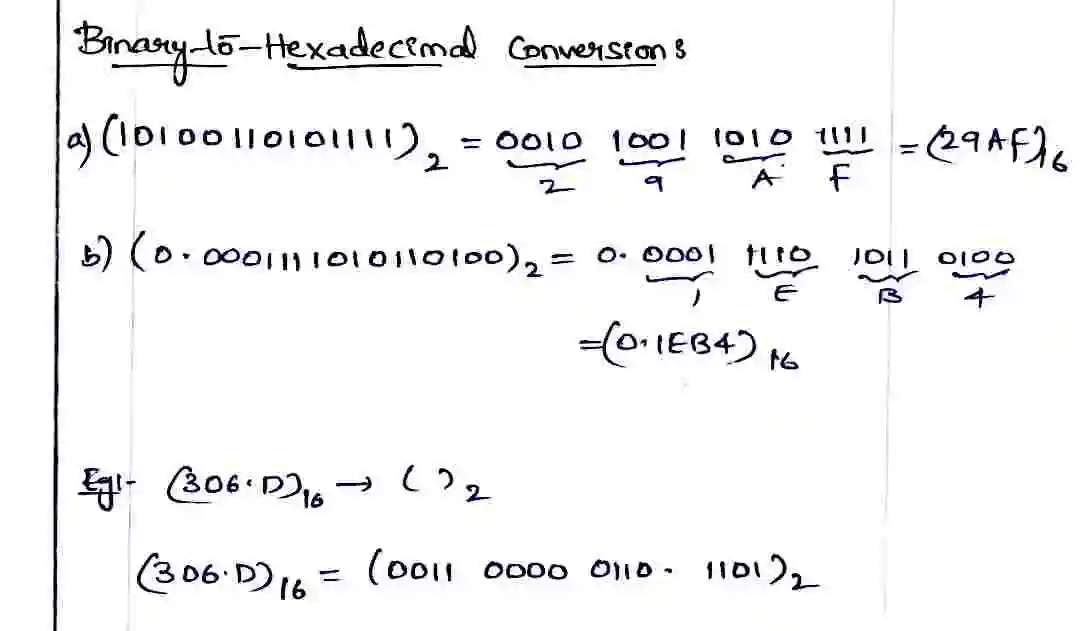 Binary-to-Hexadecimal Conversions
a) (10100110101111)2 = 0010 1001 1010 1111 = (29AF)16
2 9 A F
b) (0.0001111010110100)2 = 0.0001 1110 1011 0100
1 E B 4
=(0.1EB4)16
Eg:- (306.D)16 → ( )2
(306.D)16 = (0011 0000 0110. 1101)2